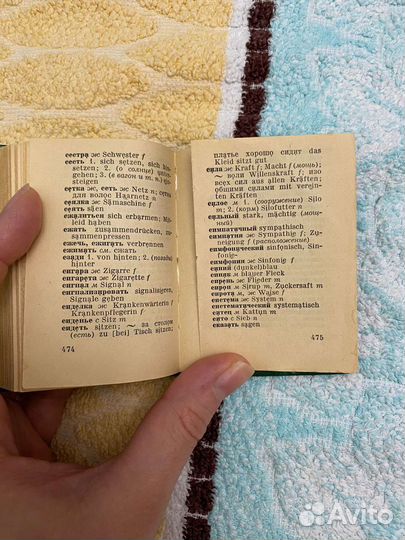 сестра ж Schwester f
сесть 1. sich setzen, sich hin-
setzen; 2. (о солнце) unter-
gehen; 3. (в вагон и т. п.) ein-
steigen
сетка ж, сеть ж Netz n; ~
для волос Haarnetz n
сеялка ж Sämaschine f
сеять säen
сжалиться sich erbarmen; Mit-
leid haben
сжать zusammendrücken, zu-
sammenpressen
сжечь, сжигать verbrennen
сжимать см. сжать
сзади 1. von hinten; 2. (позади)
hinter
сигара ж Zigarre f
сигарета ж Zigarette f
сигнал м Signal n
сигнализировать signalisieren,
Signale geben
сиделка ж Krankenwärterin f,
Krankenpflegerin f
сиденье с Sitz m
сидеть sitzen; ~ за столом
(есть) zu [bei] Tisch sitzen;
474
платье хорошо сидит das
Kleid sitzt gut
сила ж Kraft f; Macht f (мощь);
~ воли Willenskraft f; изо
всех сил aus allen Kräften;
общими силами mit verein-
ten Kräften
силос м 1. (сооружение) Silo
m; 2. (корм) Silofutter n
сильный stark, mächtig (мощ-
ный)
симпатичный sympathisch
симпатия ж Sympathie f; Zu-
neigung f (расположение)
симфонический sinfonisch, Sin-
fonie-
симфония ж Sinfonie f
синий (dunkel)blau
синяк м blauer Fleck
сирень ж Flieder m
сироп м Sirup m, Zuckersaft m
сирота м, ж Waise f
система ж System n
систематический systematisch
ситец м Kattun m
сито с Sieb n
сказать sagen
475
Avito